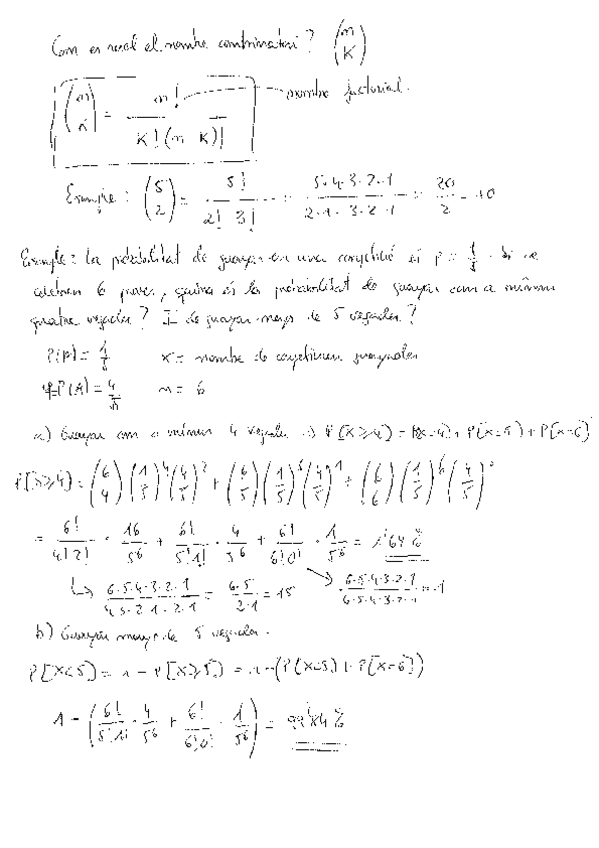 Com es resol el nombre combinatori? (m K)
(m K) = m! / K!(m-K)! nombre factorial.
Exemple: (5 2) = 5! / 2! 3! = 5·4·3·2·1 / 2·1·3·2·1 = 20/2 = 10
Exemple: La probabilitat de guanyar en una competició és p = 1/5. Si se
celebren 6 proves, quina és la probabilitat de guanyar com a mínim
quatre vegades? I de guanyar menys de 5 vegades?
P(A) = 1/5 x = nombre de competicions guanyades
q=P(A) = 4/5 m = 6
a) Guanyar com a mínim 4 vegades => P[X≥4] = P[X=4] + P[X=5] + P[X=6]
P[X≥4] = (6 4)(1/5)^4(4/5)^2 + (6 5)(1/5)^5(4/5)^1 + (6 6)(1/5)^6(4/5)^0
= 6!/4!2! · 16/5^6 + 6!/5!1! · 4/5^6 + 6!/6!0! · 1/5^6 = 1'64 %
↳ 6·5·4·3·2·1 / 4·3·2·1·2·1 = 6·5/2·1 = 15 → 6·5·4·3·2·1 / 6·5·4·3·2·1 = 1
b) Guanyar menys de 5 vegades.
P[X<5] = 1 - P[X≥5] = 1-(P[X=5] + P[X=6])
1 - (6!/5!1! · 4/5^6 + 6!/6!0! · 1/5^6) = 99'84 %